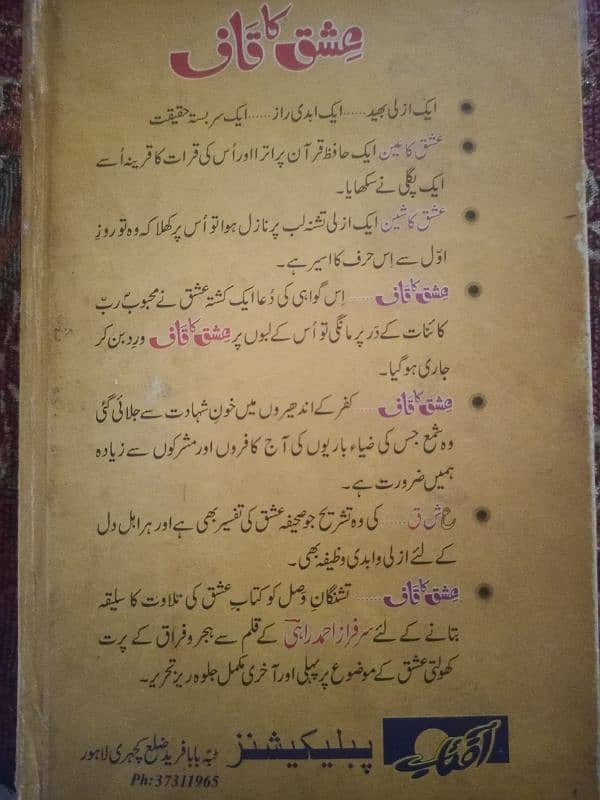 عشق کا قاف
ایک ازلی بھید......ایک ابدی راز......ایک سربستہ حقیقت
عشق کا عین ایک حافظ قرآن پر اترا اور اُس کی قرات کا قرینہ اُسے
ایک پگلی نے سکھایا۔
عشق کا شین ایک ازلی تشنہ لب پر نازل ہوا تو اُس پر کھلا کہ وہ تو روزِ
اوّل سے اِس حرف کا اسیر ہے۔
عشق کا قاف...... اِس گواہی کی دُعا ایک کشتۂ عشق نے محبوبِ ربّ
کائنات کے دَر پر مانگی تو اُس کے لبوں پر عشق کا قاف وِرد بن کر
جاری ہو گیا۔
عشق کا قاف...... کفر کے اندھیروں میں خونِ شہادت سے جلائی گئی
وہ شمع جس کی ضیاء باریوں کی آج کافروں اور مشرکوں سے زیادہ
ہمیں ضرورت ہے۔
ع ش ق...... کی وہ تشریح جو صحیفہ عشق کی تفسیر بھی ہے اور ہر اہل دل
کے لئے ازلی و ابدی وظیفہ بھی۔
عشق کا قاف...... تشنگانِ وصل کو کتابِ عشق کی تلاوت کا سلیقہ
بتانے کے لئے سرفراز احمد راہی کے قلم سے ہجر و فراق کے پرت
کھولتی عشق کے موضوع پر پہلی اور آخری مکمل جلوہ ریز تحریر۔
آفتاب پبلیکیشنز ٹبہ بابا فرید ضلع کچہری لاہور
Ph: 37311965